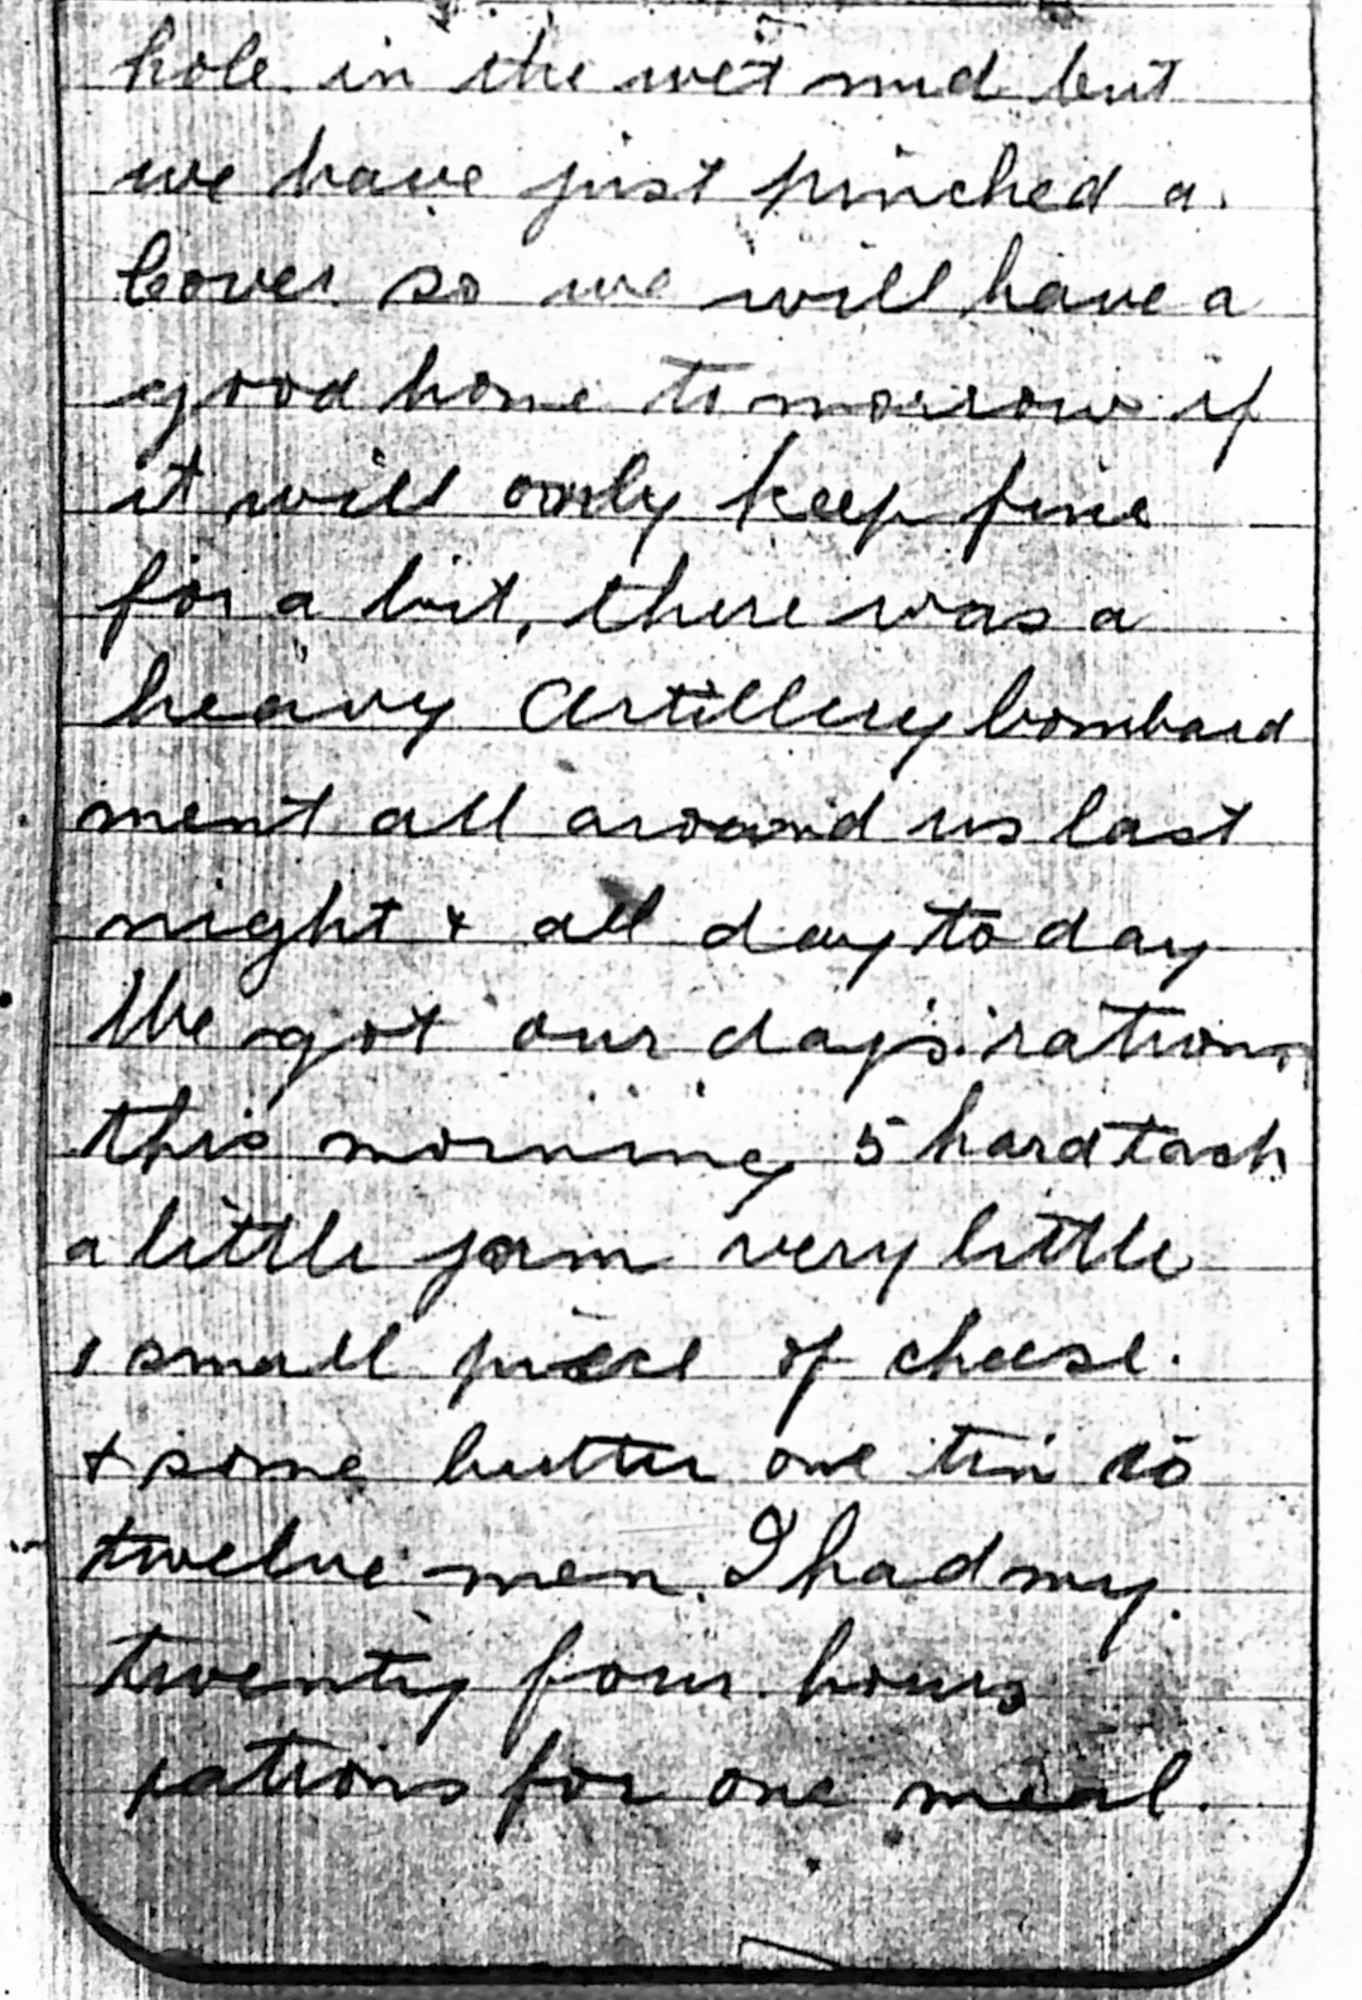 hole in the wet mud but
we have just pinched a
cover so we will have a
good home to morrow if
it will only keep fine
for a bit, there was a
heavy Artillery bombard
ment all around us last
night & all day to day
We got our day's rations
this morning 5 hard tack
a little jam very little
1 small piece of cheese.
& some butter one tin to
twelve men. I had my
twenty four hours
rations for one meal.